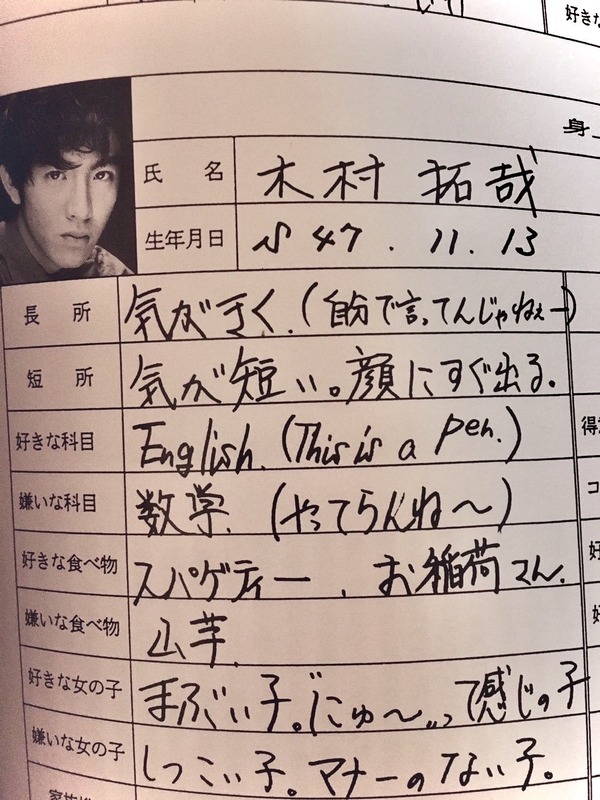 好きな
身
氏 名 木村 拓哉
生年月日 S 47 . 11. 13
長 所 気がきく.(自分で言ってんじゃねぇー)
短 所 気が短い。顔にすぐ出る.
好きな科目 English. (This is a pen.)
嫌いな科目 数学. (やってらんね〜)
好きな食べ物 スパゲティー . お稲荷さん.
嫌いな食べ物 山芋.
好きな女の子 まぶい子。 って感じの子
嫌いな女の子 しつこい子。マナーのない子。
得
コ
好
好